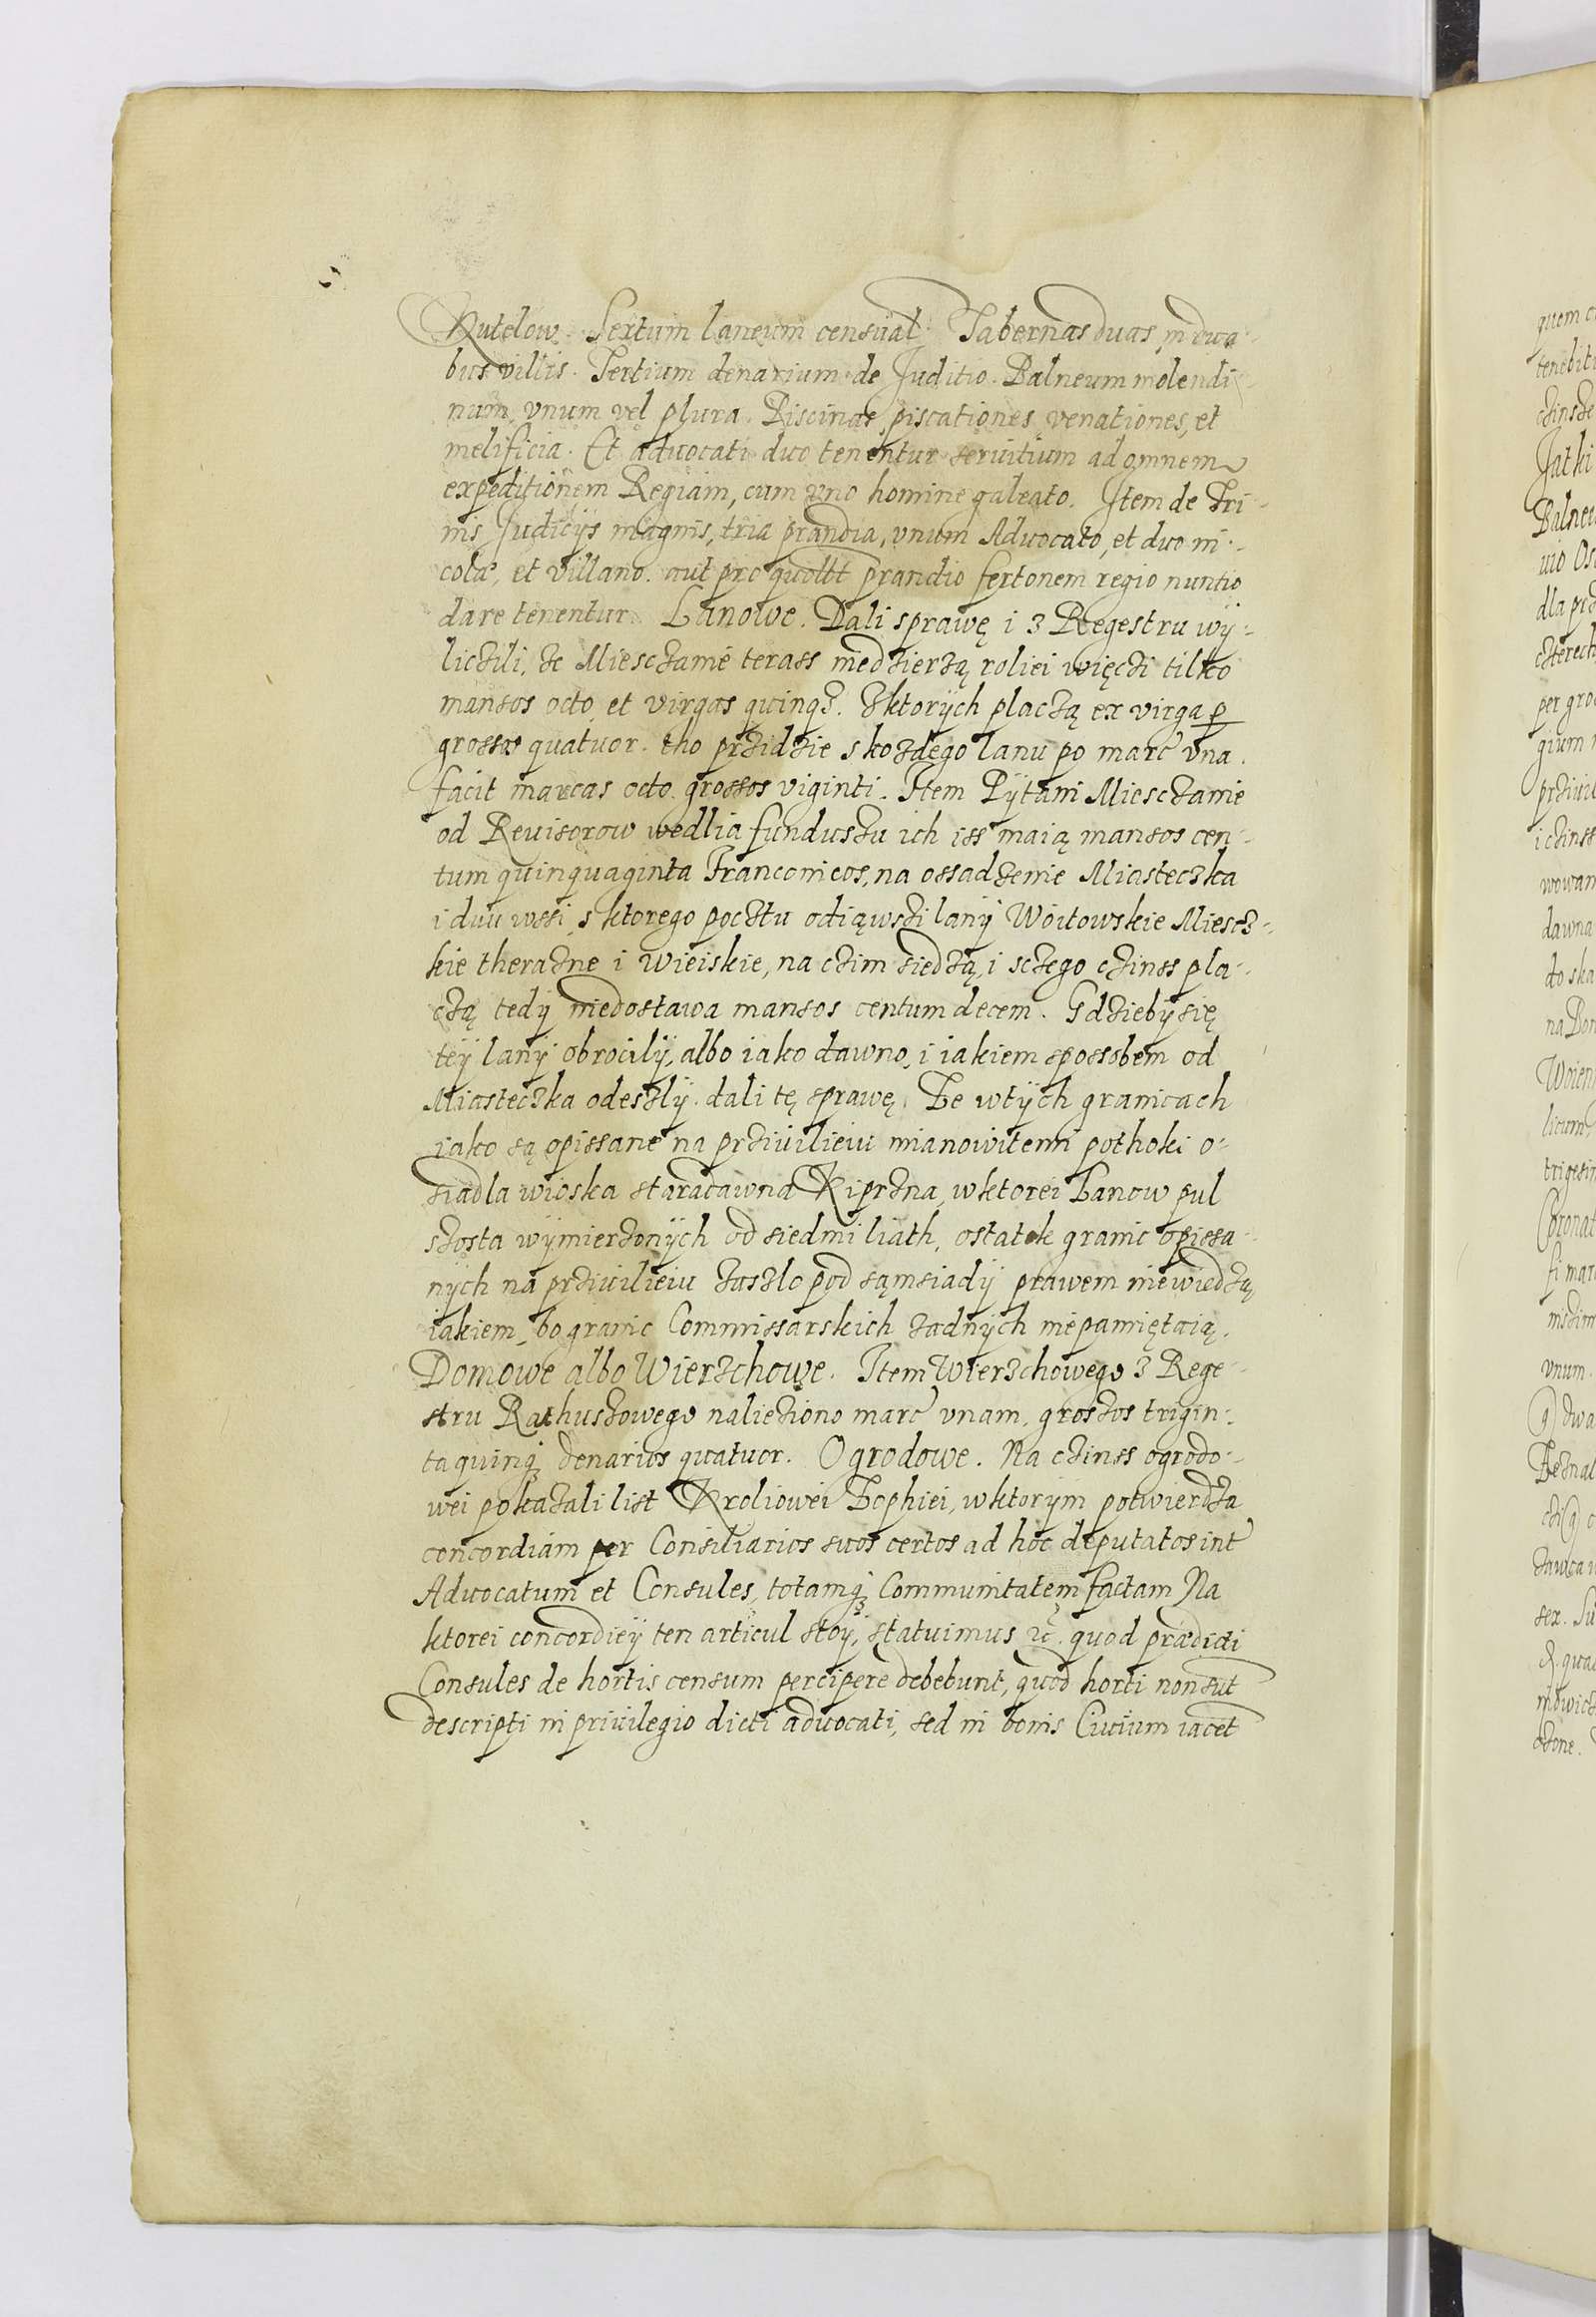 Kutelow. Sextum laneum censual. Tabernas duas, in dua-
bus villis. Tertium denarium de Juditio. Balneum molendi-
num, vnum vel plura. Piscinas, piscationes, venationes, et
melificia. Et aduocati duo tenentur seruitium ad omnem
expeditionem Regiam, cum vno homine galeato. Item de Tri-
nis Judicÿs magnis, tria prandia, vnum Aduocato, et duo in-
cola, et villano. aut pro quolt prandio fertonem regio nuntio
dare tenentur. Lanowe. Dali sprawę i z Regestru wÿ-
liczili, ze Miesczanie terass niedzierzą roliei więczi tilko
mansos octo, et virgas quinqꝫ. Zktorÿch placzą ex virga ꝑ
grossos quatuor. tho przidzie s kozdego lanu po marc vna.
facit marcas octo. grossos viginti. Item Pÿtani Miesczanie
od Reuisorow wedlia funduszu ich iss maią mansos cen-
tum quinquaginta Franconicos, na ossadzenie Miasteczka
i duu wssi, s ktorego pocztu odiąwszi lanÿ Woitowskie Miescz-
kie therazne i Wieiskie, na czim siedzą, i sczego czinss pla-
czą tedÿ niedostawa mansos centum decem. Gdziebÿ się
teÿ lanÿ obrocilÿ, albo iako dawno, i iakiem sposobem od
Miasteczka odeszlÿ. dali tę sprawę. Ze wtÿch granicach
iako są opissane na prziuilieiu mianowitemi pothoki o-
siadla wioska staradawna Kiprzna, wktorei Łanow pul
szosta wÿmierzonÿch od siedmi liath, ostatek granic opissa-
nÿch na prziuilieiu zaszlo pod sąmsiadÿ prawem niewiedzą
iakiem, bo granic Commissarskich zadnÿch niepamiętaią.
Domowe albo Wierzchowe. Item Wierzchowego z Rege-
stru Rathuszowego nalicziono marc vnam, groszos trigin-
ta quinqꝫ denarios quatuor. Ogrodowe. Na czinss ogrodo-
wei pokazali list Kroliowei Zophiei, wktorÿm potwierdza
concordiam per Consiliarios suos certos ad hoc deputatos int
Aduocatum et Consules, totamqꝫ Communitatem factam Na
ktorei concordieÿ ten articul stoÿ, statuimus ꝛc. quod prædicti
Consules de hortis censum percipere debebunt, quod horti non sut
descripti in priuilegio dicti aduocati, sed in bonis Ciuium iacet